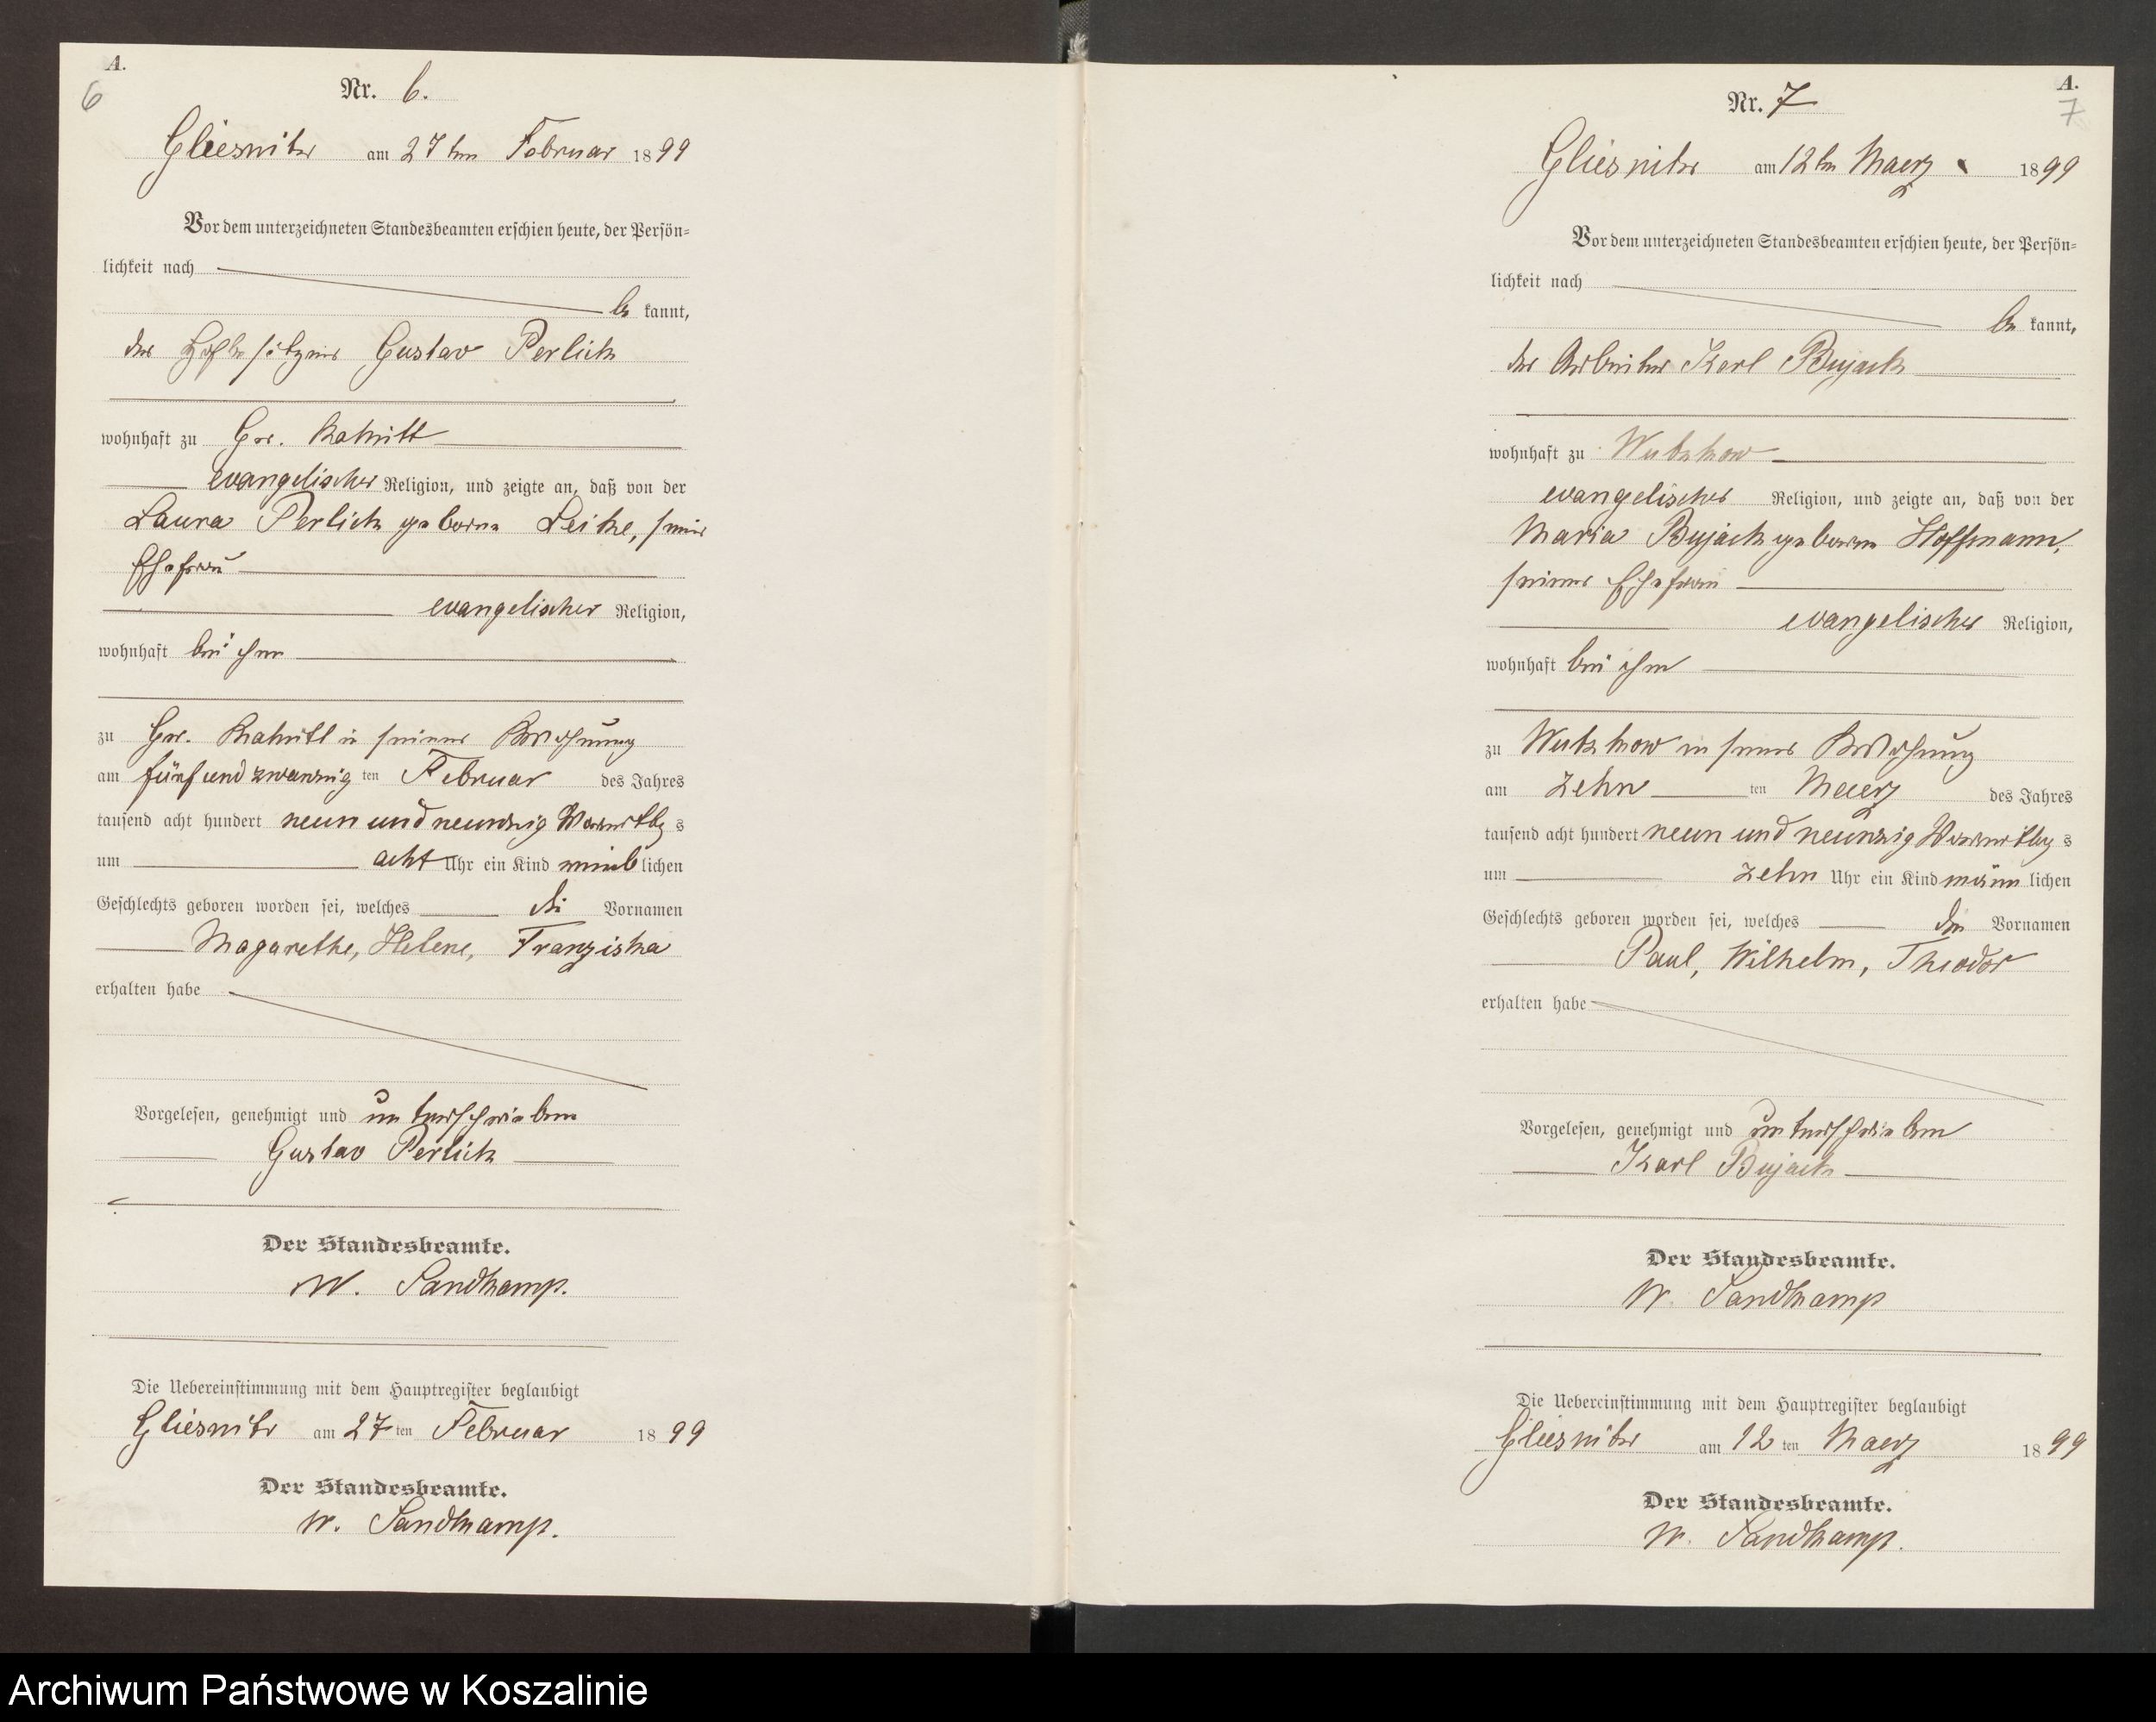 A.
6
Nr. 6.
Gliesnitz am 27ten Februar 1899
Vor dem unterzeichneten Standesbeamten erschien heute, der Persön-
lichkeit nach
be kannt,
der Hofbesitzer Gustav Perlick
wohnhaft zu Gr. Rakitt
evangelischer Religion, und zeigte an, daß von der
Laura Perlick geborne Leike, seine
Ehefrau
evangelischer Religion,
wohnhaft bei ihm
zu Gr. Rakitt in seiner Wohnung
am fünfundzwanzig ten Februar des Jahres
tausend acht hundert neun und neunzig Vormittag s
um acht Uhr ein Kind weib lichen
Geschlechts geboren worden sei, welches die Vornamen
Magarethe, Helene, Franziska
erhalten habe
Vorgelesen, genehmigt und unterschrieben
Gustav Perlick
Der Standesbeamte.
W. Sandkamp.
Die Uebereinstimmung mit dem Hauptregister beglaubigt
Gliesnitz am 27 ten Februar 1899
Der Standesbeamte.
W. Sandkamp.
A.
7
Nr. 7
Gliesnitz am 12ten Maerz 1899
Vor dem unterzeichneten Standesbeamten erschien heute, der Persön-
lichkeit nach
be kannt,
der Arbeiter Karl Bujack
wohnhaft zu Wutzkow
evangelischer Religion, und zeigte an, daß von der
Maria Bujack geborne Hoffmann,
seiner Ehefrau
evangelischer Religion,
wohnhaft bei ihm
zu Wutzkow in seiner Wohnung
am zehn ten Maerz des Jahres
tausend acht hundert neun und neunzig Vormittag s
um zehn Uhr ein Kind männ lichen
Geschlechts geboren worden sei, welches die Vornamen
Paul, Wilhelm, Theodor
erhalten habe
Vorgelesen, genehmigt und unterschrieben
Karl Bujack
Der Standesbeamte.
W. Sandkamp
Die Uebereinstimmung mit dem Hauptregister beglaubigt
Gliesnitz am 12 ten Maerz 1899
Der Standesbeamte.
W. Sandkamp.
Archiwum Państwowe w Koszalinie